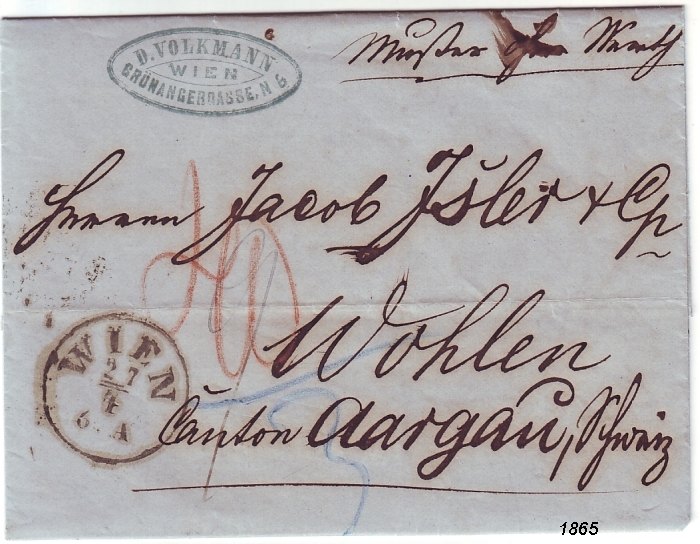 D. VOLKMANN
WIEN
GRÜNANGERGASSE. N 6
Muster ohne Werth
Herren Jacob Isler & Cp
Wohlen
Canton Aargau, Schweiz
WIEN
27
4
6. A
1865